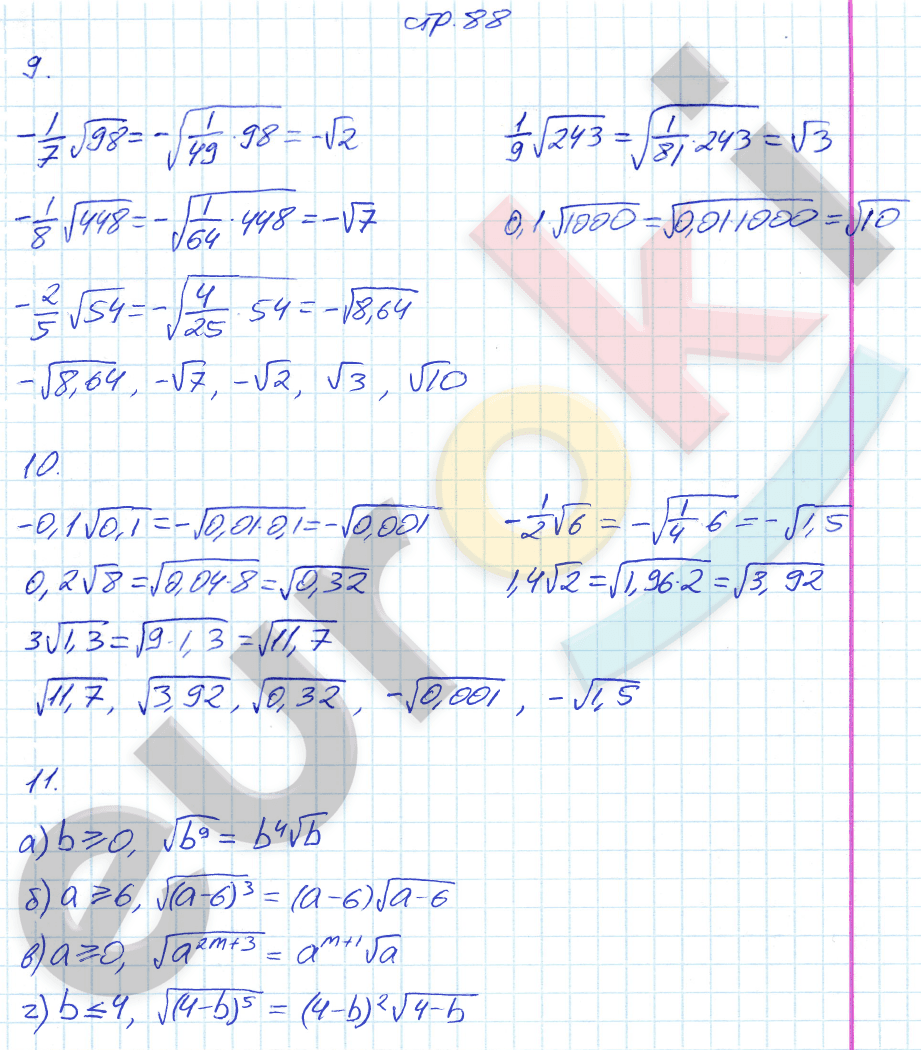 стр. 88
9.
-1/7 √98 = -√(1/49 · 98) = -√2
1/9 √243 = √(1/81 · 243) = √3
-1/8 √448 = -√(1/64 · 448) = -√7
0,1·√1000 = √(0,01·1000) = √10
-2/5 √54 = -√(4/25 · 54) = -√8,64
-√8,64, -√7, -√2, √3, √10
10.
-0,1√0,1 = -√(0,01·0,1) = -√0,001
-1/2 √6 = -√(1/4 · 6) = -√1,5
0,2√8 = √(0,04·8) = √0,32
1,4√2 = √(1,96·2) = √3,92
3√1,3 = √(9·1,3) = √11,7
√11,7, √3,92, √0,32, -√0,001, -√1,5
11.
а) b ⩾ 0, √(b⁹) = b⁴√b
б) a ⩾ 6, √((a-6)³) = (a-6)√(a-6)
в) a ⩾ 0, √(a^(2m+3)) = a^(m+1)√a
г) b ≤ 4, √((4-b)⁵) = (4-b)²√(4-b)
euroki